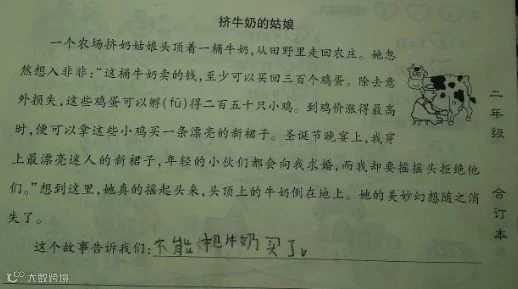 挤牛奶的姑娘
一个农场挤奶姑娘头顶着一桶牛奶,从田野里走回农庄。她忽
然想入非非:“这桶牛奶卖的钱,至少可以买回三百个鸡蛋。除去意
外损失,这些鸡蛋可以孵(fū)得二百五十只小鸡。到鸡价涨得最高
时,便可以拿这些小鸡买一条漂亮的新裙子。圣诞节晚宴上,我穿
上最漂亮迷人的新裙子,年轻的小伙们都会向我求婚,而我却要摇摇头拒绝他
们。”想到这里,她真的摇起头来,头顶上的牛奶倒在地上。她的美妙幻想随之消
失了。
这个故事告诉我们:不能把牛奶买了。
二年级
合订本
大数跨境